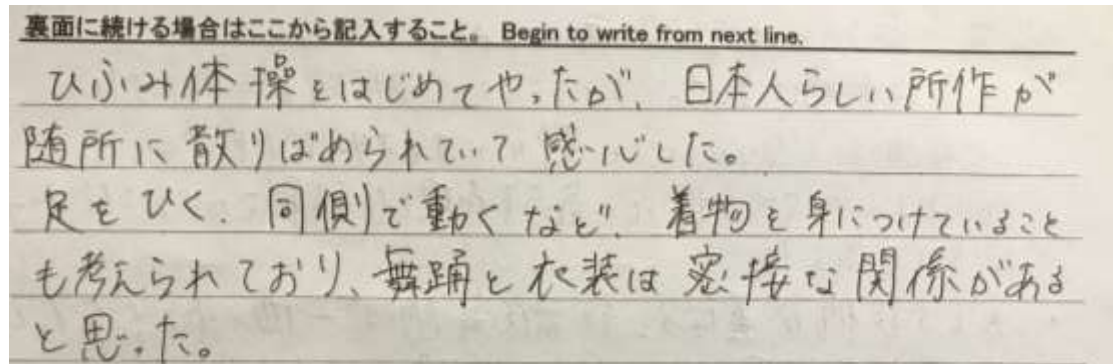 裏面に続ける場合はここから記入すること。 Begin to write from next line.
ひふみ体操をはじめてやったが、日本人らしい所作が
随所に散りばめられていて感心した。
足をひく、同側で動くなど、着物を身につけていること
も考えられており、舞踊と衣装は密接な関係がある
と思った。